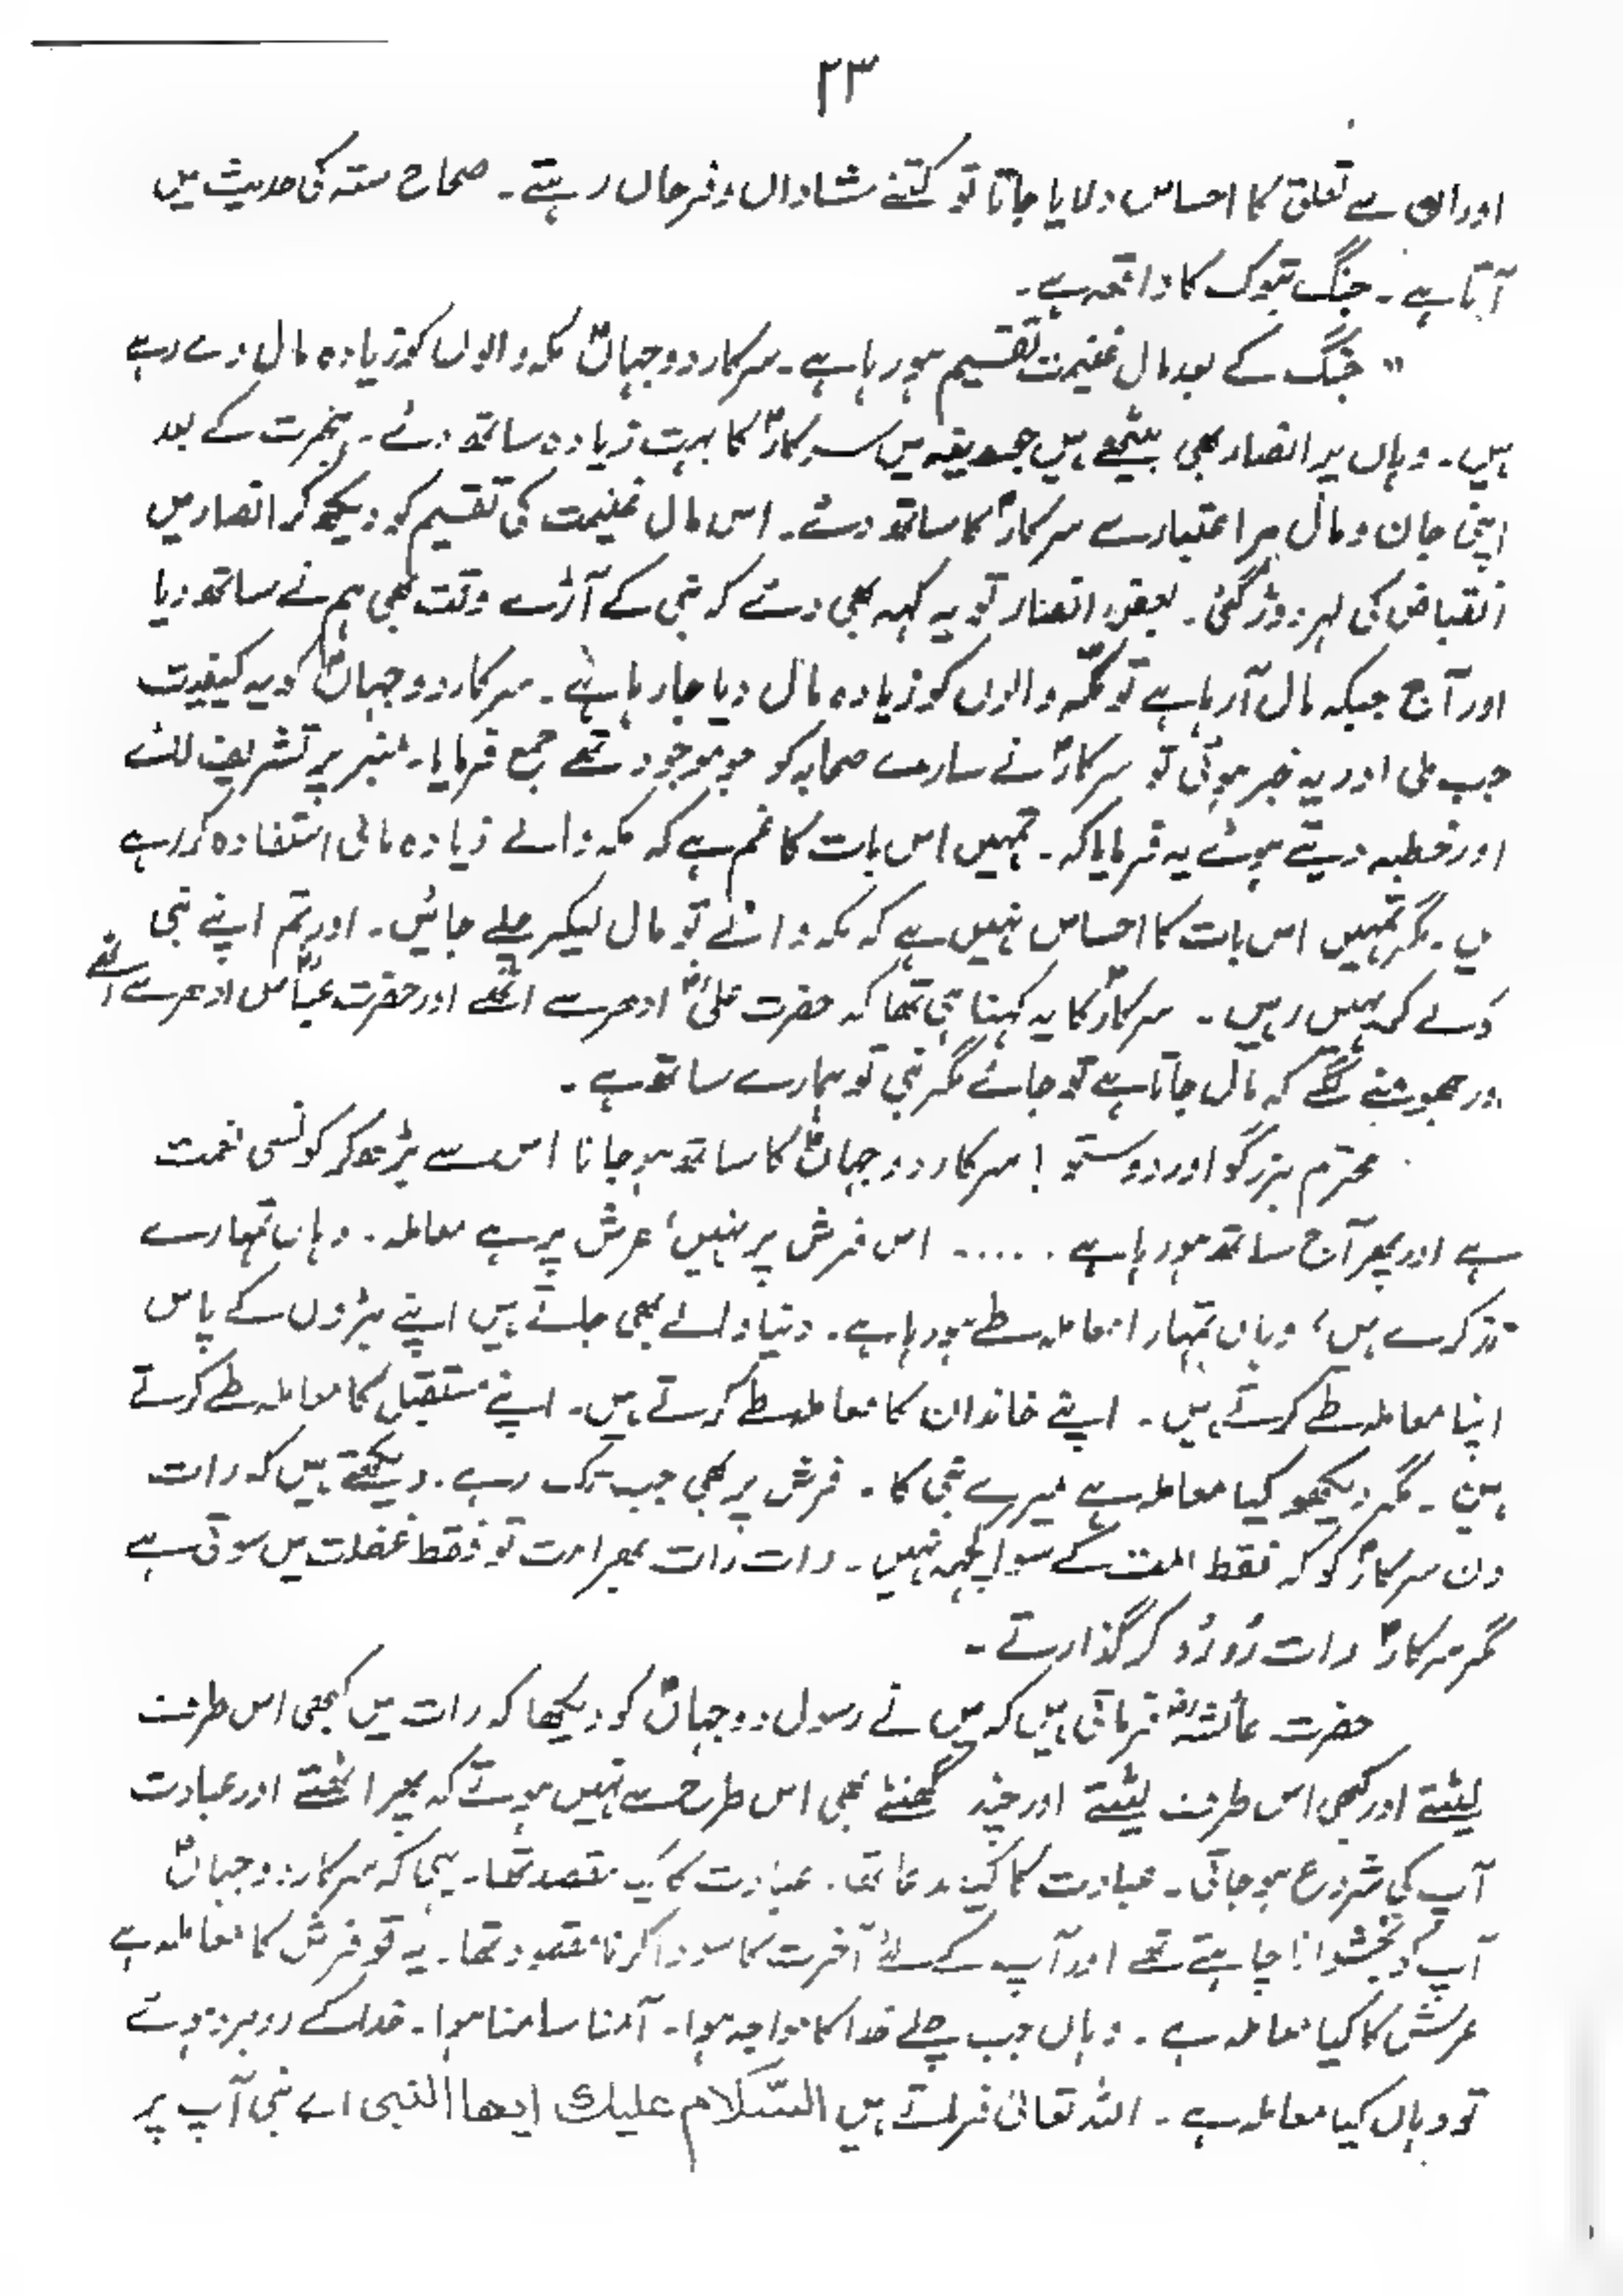 ۲۳
اور ان سے تعلق کا احساس دلایا جاتا تو کتنے شاداں و فرحاں رہتے۔ صحاح ستہ کی حدیث میں
آتا ہے۔ جنگ تبوک کا واقعہ ہے۔
" جنگ کے بعد مال غنیمت تقسیم ہو رہا ہے۔ سرکار دو جہاںؐ مکہ والوں کو زیادہ مال دے رہے
ہیں۔ وہاں پر انصار بھی بیٹھے ہیں جو مدینہ میں سرکارؐ کا بہت زیادہ ساتھ دئے۔ ہجرت کے بعد
اپنی جان و مال ہر اعتبار سے سرکارؐ کا ساتھ دئے۔ اس مال غنیمت کی تقسیم کو دیکھ کر انصار میں
انقباض کی لہر دوڑ گئی۔ بعض انصار تو یہ کہہ بھی دئے کہ نبی کے آڑے وقت بھی ہم نے ساتھ دیا
اور آج جبکہ مال آرہا ہے تو مکہ والوں کو زیادہ مال دیا جارہا ہے۔ سرکار دو جہاںؐ کو یہ کیفیت
جب ملی اور یہ خبر ہوئی تو سرکارؐ نے سارے صحابہ کو جو موجود تھے جمع فرمایا۔ منبر پر تشریف لائے
اور خطبہ دیتے ہوئے یہ فرمایا کہ۔ تمہیں اس بات کا غم ہے کہ مکہ والے زیادہ مالی استفادہ کررہے
ہیں۔ مگر تمہیں اس بات کا احساس نہیں ہے کہ مکہ والے تو مال لیکر چلے جائیں۔ اور تم اپنے نبی
کولے کر یہیں رہیں۔ سرکارؐ کا یہ کہنا ہی تھا کہ حضرت علیؓ ادھر سے اٹھے اور حضرت عباسؓ ادھر سے اٹھے
اور جھومنے لگے کہ مال جاتا ہے تو جائے مگر نبی تو ہمارے ساتھ ہے۔
محترم بزرگو اور دوستو! سرکار دو جہاںؐ کا ساتھ ہو جانا اس سے بڑھ کر کونسی نعمت
ہے اور پھر آج ساتھ ہو رہا ہے ...... اس فرش پر نہیں، عرش پر ہے معاملہ۔ وہاں تمہارے
تذکرے ہیں، وہاں تمہارا معاملہ طے ہو رہا ہے۔ دنیا والے بھی جاتے ہیں اپنے بڑوں کے پاس
اپنا معاملہ طے کرتے ہیں۔ اپنے خاندان کا معاملہ طے کرتے ہیں۔ اپنے مستقبل کا معاملہ طے کرتے
ہیں۔ مگر دیکھو کیا معاملہ ہے میرے نبی کا۔ فرش پر بھی جب تک رہے۔ دیکھتے ہیں کہ رات
دن سرکارؐ کو کہ فقط امت کے سوا کچھ نہیں۔ رات رات بھر امت تو فقط غفلت میں سوتی ہے
مگر سرکارؐ رات رُو رُو کر گذارتے۔
حضرت عائشہؓ فرماتی ہیں کہ میں نے رسول دو جہاںؐ کو دیکھا کہ رات میں کبھی اس طرف
لیٹتے اور کبھی اس طرف لیٹتے اور چند گھنٹے بھی اس طرح سے نہیں ہوتے کہ پھر اٹھتے اور عبادت
آپ کی شروع ہو جاتی۔ عبادت کا کیا مدعا تھا۔ عبادت کا کیا مقصد تھا۔ یہی کہ سرکار دو جہاںؐ
آپ کو بخشوانا چاہتے تھے اور آپ کے لئے آخرت کا سودا کرنا مقصود تھا۔ یہ تو فرش کا معاملہ ہے
عرش کا کیا معاملہ ہے۔ وہاں جب چلے خدا کا مواجہ ہوا۔ آمنا سامنا ہوا۔ خدا کے روبرو ہوئے
تو وہاں کیا معاملہ ہے۔ اللہ تعالیٰ فرماتے ہیں السّلام علیك ایها النبی اے نبی آپ پر